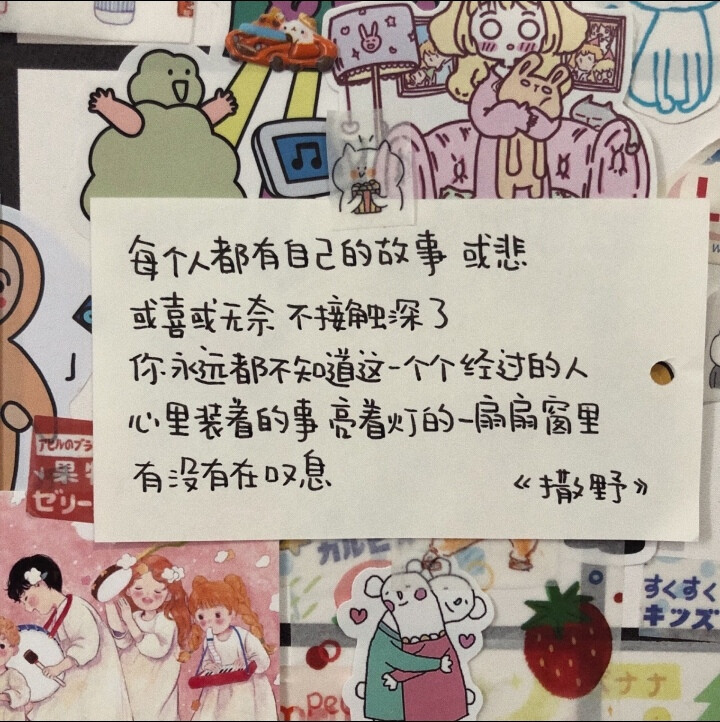 每个人都有自己的故事 或悲
或喜或无奈 不接触深了
你永远都不知道这一个个经过的人
心里装着的事 亮着灯的一扇扇窗里
有没有在叹息
《撒野》
アセルのブラ
果物
ゼリー
カルピ
すくすく
キッズ
バナナ